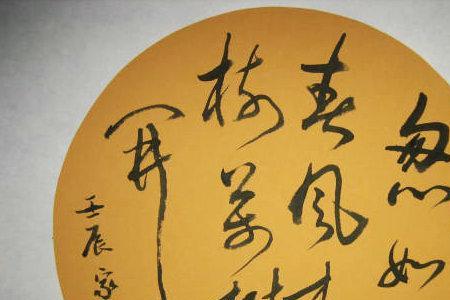 忽如
春風
樹萬
開
壬辰家